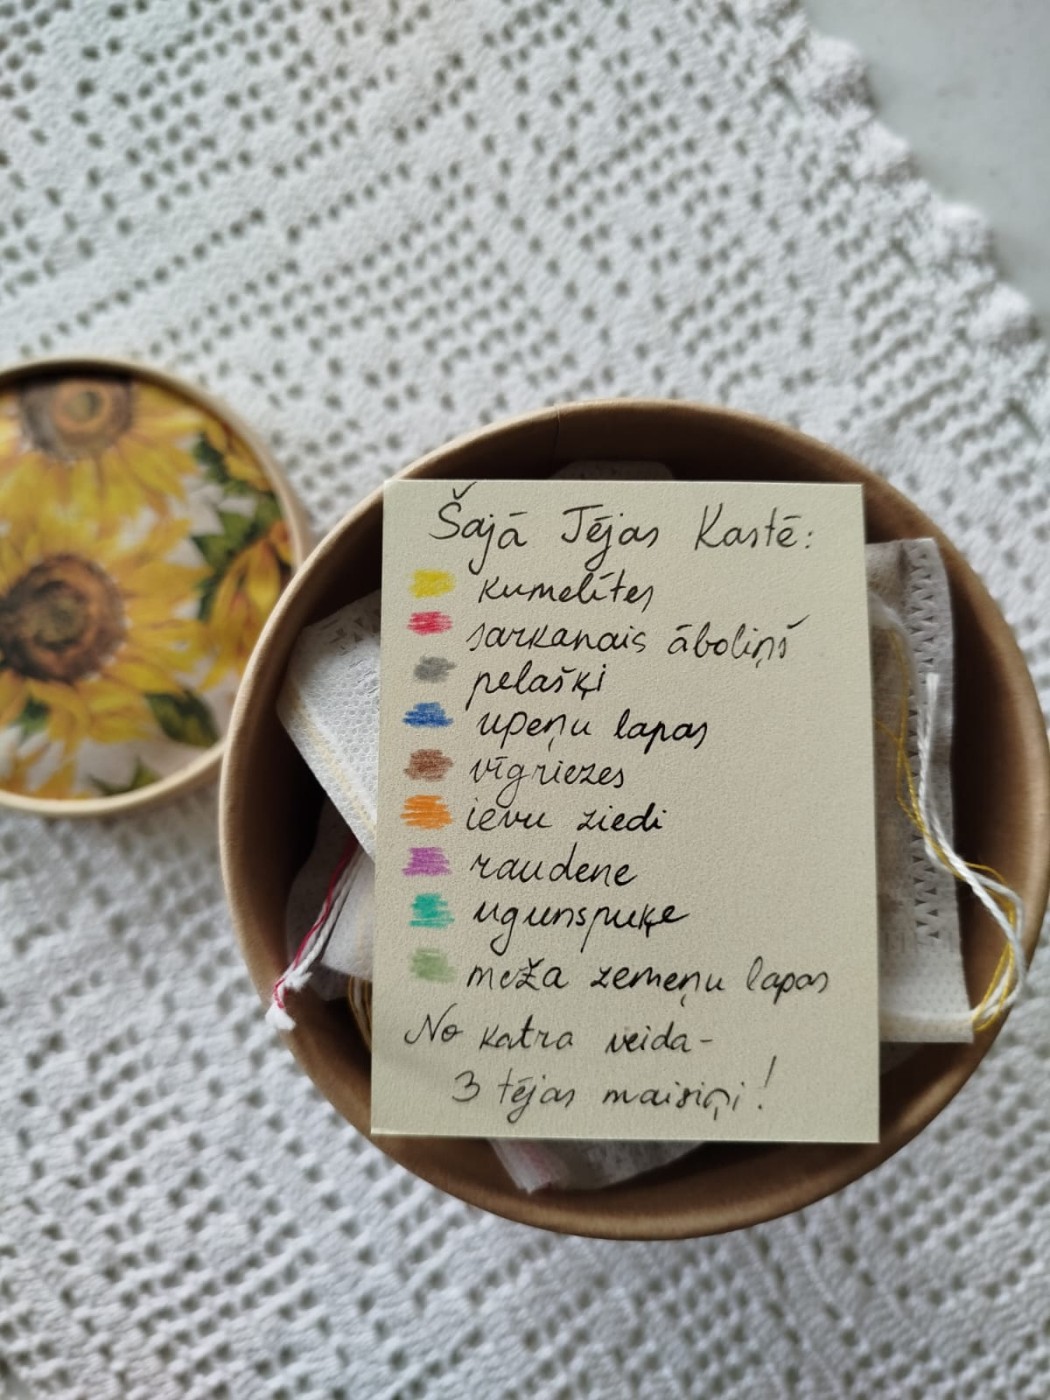 Šajā Tējas Kastē:
kumelītes
sarkanais āboliņš
pelašķi
upeņu lapas
vīgriezes
ievu ziedi
raudene
ugunspuķe
meža zemeņu lapas
No katra veida-
3 tējas maisiņi!